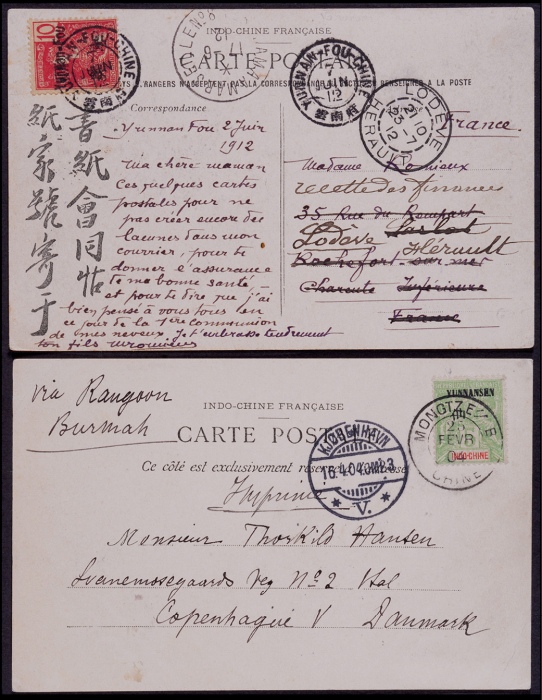 INDO-CHINE FRANÇAISE
CARTE POSTALE
10
YUNNAN-FOU-CHINE
雲南府
YUNNAN-FOU-CHINE
7
JUIN
12
雲南府
LODÈVE
21-10
23-7
12
HERAULT
Correspondance
Yunnan Fou 2 Juin
1912
Ma chère maman
Ces quelques cartes
postales pour ne
pas créer encore des
lacunes dans mon
courrier, pour te
donner l'assurance
de ma bonne santé, -
et pour te dire que j'ai
bien pensé à vous tous en
ce jour de la 1ère communion
de mes neveux. Je t'embrasse tendrement
ton fils
書紙會同
紙家號寄于
France
Madame
recette des finances
35 Rue du Rempart
Lodève
Hérault
Rochefort-sur-mer
Charente Inférieure
France
via Rangoon
Burmah
INDO-CHINE FRANÇAISE
CARTE POSTALE
Ce côté est exclusivement réservé
Imprimé
KJØBENHAVN
16.4.04.
V.
YUNNANSEN
INDO-CHINE
MONGTZE
25
FEVR
CHINE
Monsieur Thorkild Hansen
Svanemosegaards Veg No 2 Stal
Copenhague V Danmark